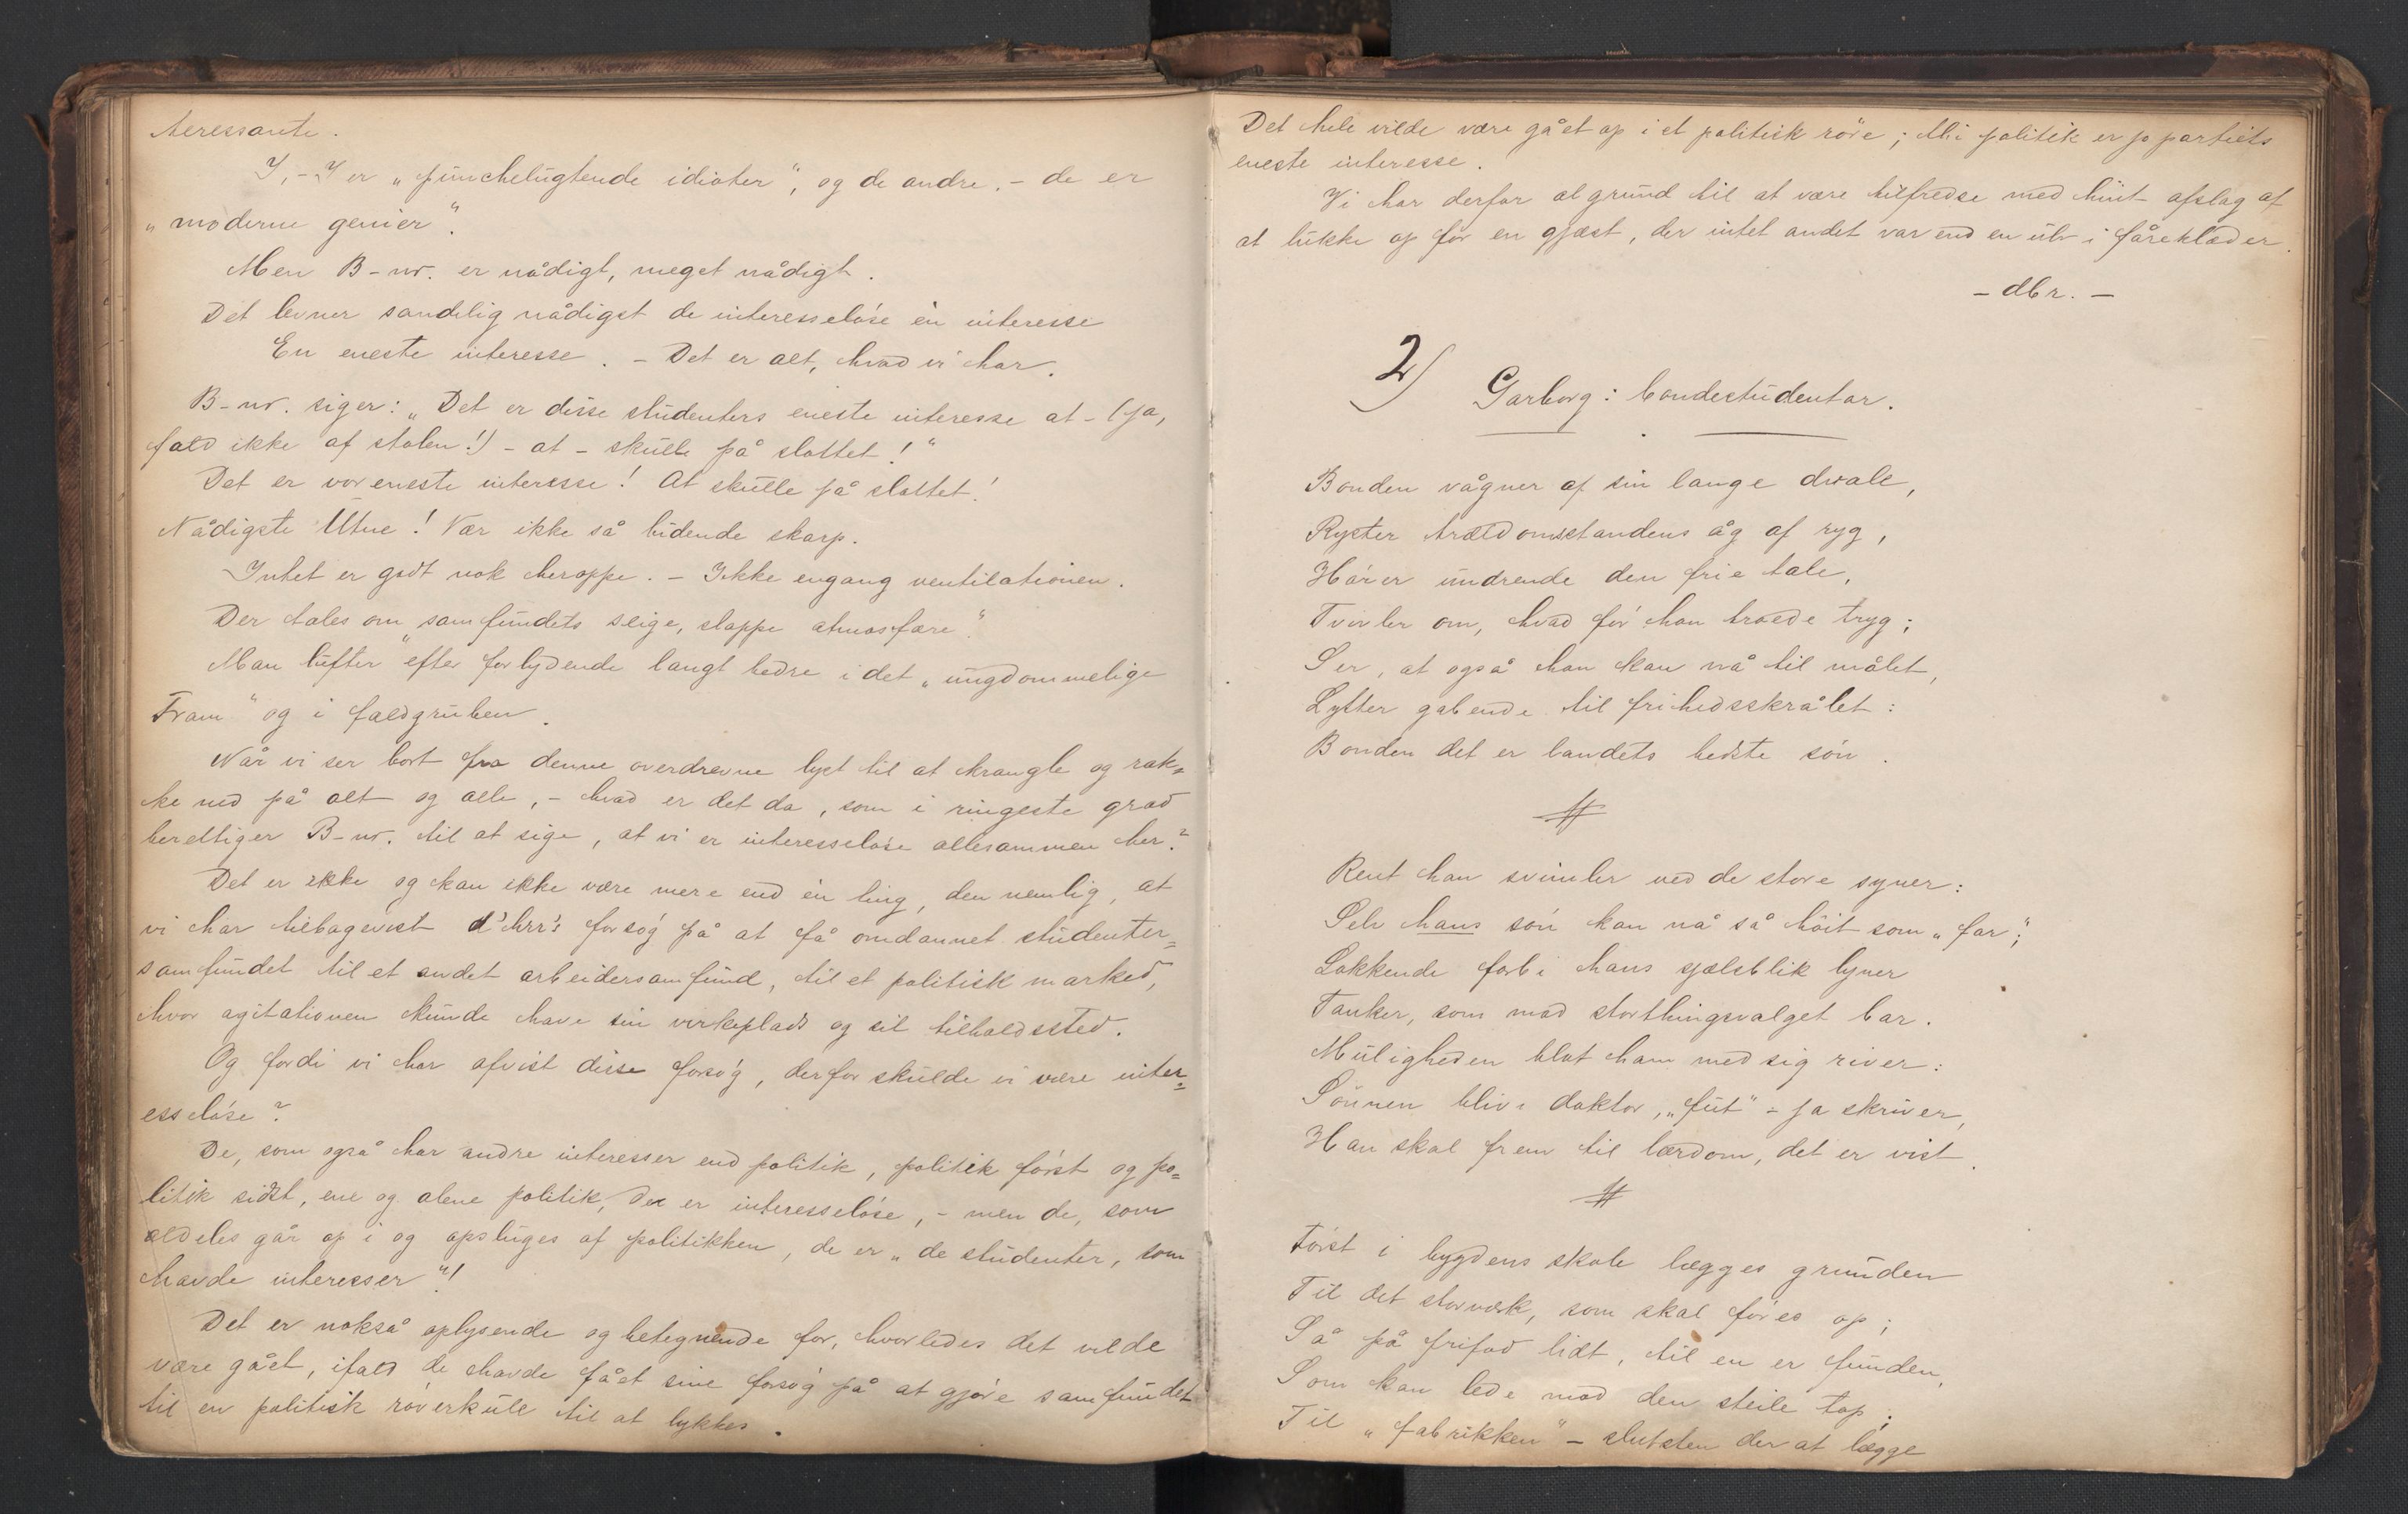 teressante.
I, - I er „punchelugtende idioter“, og de andre, - de er
„moderne genier“.
Men B-nr. er nådigt, meget nådigt.
Det levner sandelig nådigst de interesseløse én interesse
En eneste interesse. - Det er alt, hvad vi har.
B-nr. siger: „Det er disse studenters eneste interesse at - (ja,
fald ikke af stolen!) - at - skulle på slottet!“
Det er vor eneste interesse! At skulle på slottet!
Nådigste Utne! Vær ikke så bidende skarp.
Intet er godt nok heroppe. - Ikke engang ventilationen.
Der tales om „samfundets seige, slappe atmosfære“.
Man lufter efter forlydende langt bedre i det „ungdommelige
Fram“ og i faldgruben.
Når vi ser bort fra denne overdrevne lyst til at krangle og rak-
ke ned på alt og alle, - hvad er det da, som i ringeste grad
berettiger B-nr. til at sige, at vi er interesseløse allesammen her?
Det er ikke og kan ikke være mere end én ting, den nemlig, at
vi har tilbagevist d'hrr's forsøg på at få omdannet studenter-
samfundet til et andet arbeidersamfund, til et politisk marked,
hvor agitationen kunde have sin virkeplads og sit tilholdssted.
Og fordi vi har afvist disse forsøg, derfor skulde vi være inter-
esseløse?
De, som også har andre interesser end politik, politik først og po-
litik sidst, ene og alene politik, de er interesseløse, - men de, som
aldeles går op i og opsluges af politikken, de er „de studenter, som
havde interesser“!
Det er nokså oplysende og betegnende for, hvorledes det vilde
være gået, ifald de havde fået sine forsøg på at gjøre samfundet
til en politisk røverkule til at lykkes.
Det hele vilde være gået op i et politisk røre; thi politik er jo partiets
eneste interesse.
Vi har derfor al grund til at være tilfredse med hint afslag af
at lukke op for en gjæst, der intet andet var end en ulv i fåreklæder.
- dbr. -
2) Garborg: bondestudentar.
Bonden vågner af sin lange dvale,
Ryster trældomsstandens åg af ryg,
Hører undrende den frie tale,
Tvivler om, hvad før han troede tryg;
Ser, at også han kan nå til målet,
Lytter gabende til frihedsskrålet:
Bonden det er landets bedste søn.
#
Rent han svimler ved de store syner:
Selv hans søn kan nå så høit som „far“;
Lokkende forbi hans sjæleblik lyner
Tanker, som mod storthingsvalget bar.
Muligheden blot ham med sig river:
Sønnen bliver doktor, „fut“ - ja skriver,
Han skal frem til lærdom, det er vist.
#
Først i bygdens skole lægges grunden
Til det storværk, som skal føres op;
Så på frifod lidt, til en er funden,
Som kan lede mod den steile top;
Til „fabrikken“ - slutsten der at lægge